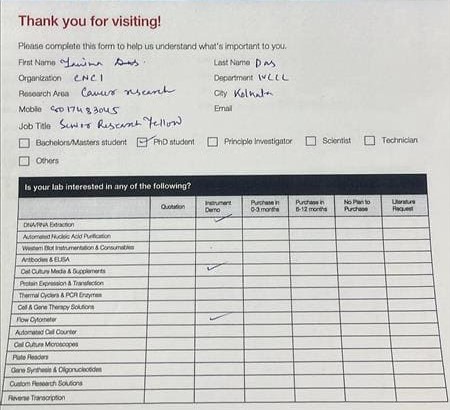 Thank you for visiting!
Please complete this form to help us understand what's important to you.
First Name Das. Last Name Das
Organization CNCI Department
Research Area Cancer research City Kolkata
Mobile Email
Job Title Senior Research Fellow
Bachelors/Masters student PhD student Principle Investigator Scientist Technician
Others
Is your lab interested in any of the following?
Quotation Instrument Demo Purchase in 0-3 months Purchase in 6-12 months No Plan to Purchase Literature Request
DNA/RNA Extraction
Automated Nucleic Acid Purification
Western Blot Instrumentation & Consumables
Antibodies & ELISA
Cell Culture Media & Supplements
Protein Expression & Transfection
Thermal Cyclers & PCR Enzymes
Cell & Gene Therapy Solutions
Flow Cytometer
Automated Cell Counter
Cell Culture Microscopes
Plate Readers
Gene Synthesis & Oligonucleotides
Custom Research Solutions
Reverse Transcription